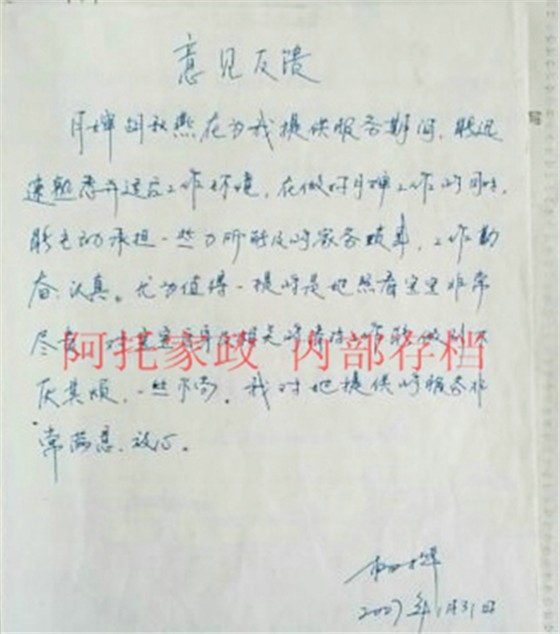 意见反馈
月嫂胡秋燕在为我提供服务期间,能迅
速熟悉并适应工作环境,在做好月嫂工作的同时,
能主动承担一些力所能及的家务琐事,工作勤
奋、认真。尤为值得一提的是她照看宝宝非常
尽
阿托家政 内部存档
厌其烦,一丝不苟。我对她提供的服务非
常满意、放心。
2007年1月31日